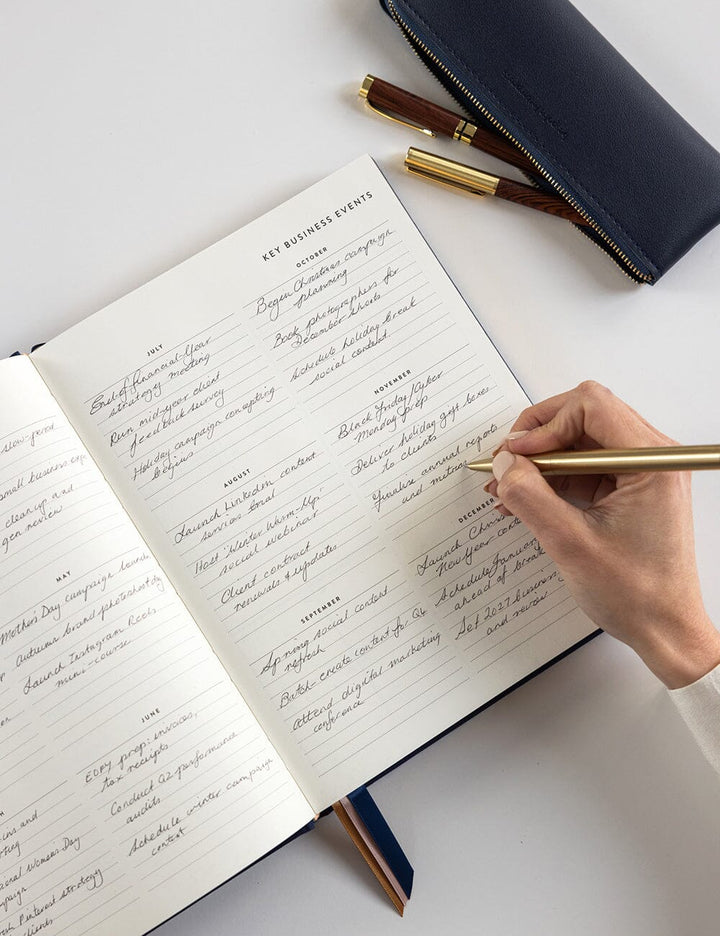 slow-period
small business
clean up and
gen review
MAY
Mother's Day campaign launch
Autumn brand photoshoot day
Launch Instagram Reels
mini-course
JUNE
EOFY prep: invoices,
tax receipts
Conduct Q2 performance
audits
Schedule winter campaign
content
and
Women's Day
Pinterest strategy
clients
KEY BUSINESS EVENTS
JULY
End-of-financial-Year
strategy meeting
Run mid-year client
feedback survey
Holiday campaign concepting
begins
AUGUST
Launch LinkedIn content
services trial
Host 'Winter Warm-Up'
social webinar
Client contract
renewals & updates
SEPTEMBER
Spring social content
refresh
Batch-create content for Q4
Attend digital marketing
conference
OCTOBER
Begin Christmas campaign
planning
Book photographers for
December shoots
Schedule holiday break
social content
NOVEMBER
Black Friday/Cyber
Monday prep
Deliver holiday gift boxes
to clients
Finalise annual reports
and
DECEMBER
Launch
New Year content
Schedule January
ahead of break
Set 2027 business
and review